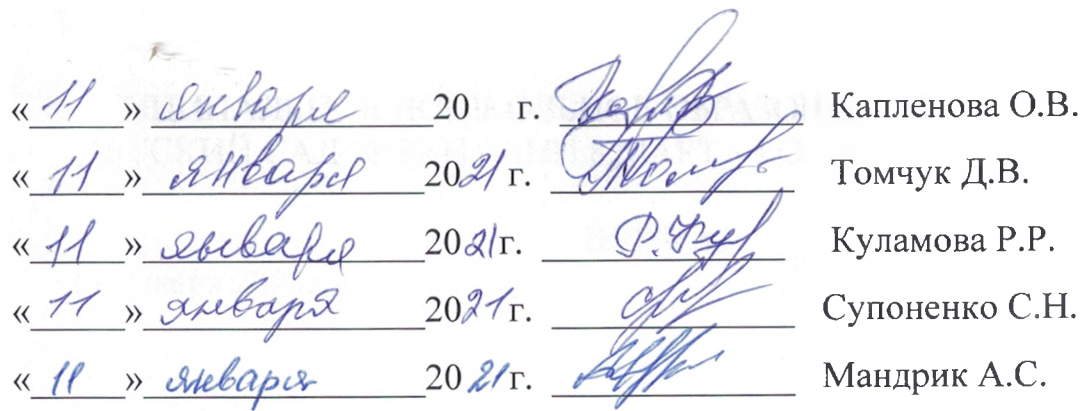 « 11 » января 20 г. Капленова О.В.
« 11 » января 2021 г. Томчук Д.В.
« 11 » января 2021 г. Куламова Р.Р.
« 11 » января 2021 г. Супоненко С.Н.
« 11 » января 2021 г. Мандрик А.С.